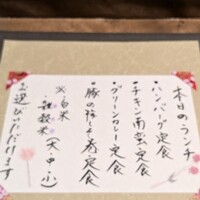 本日のランチ
・ハンバーグ定食
・チキン南蛮定食
・グリーンカレー定食
・豚の角煮定食
※白米
・雑穀米(大・中・小)
お選びいただけます